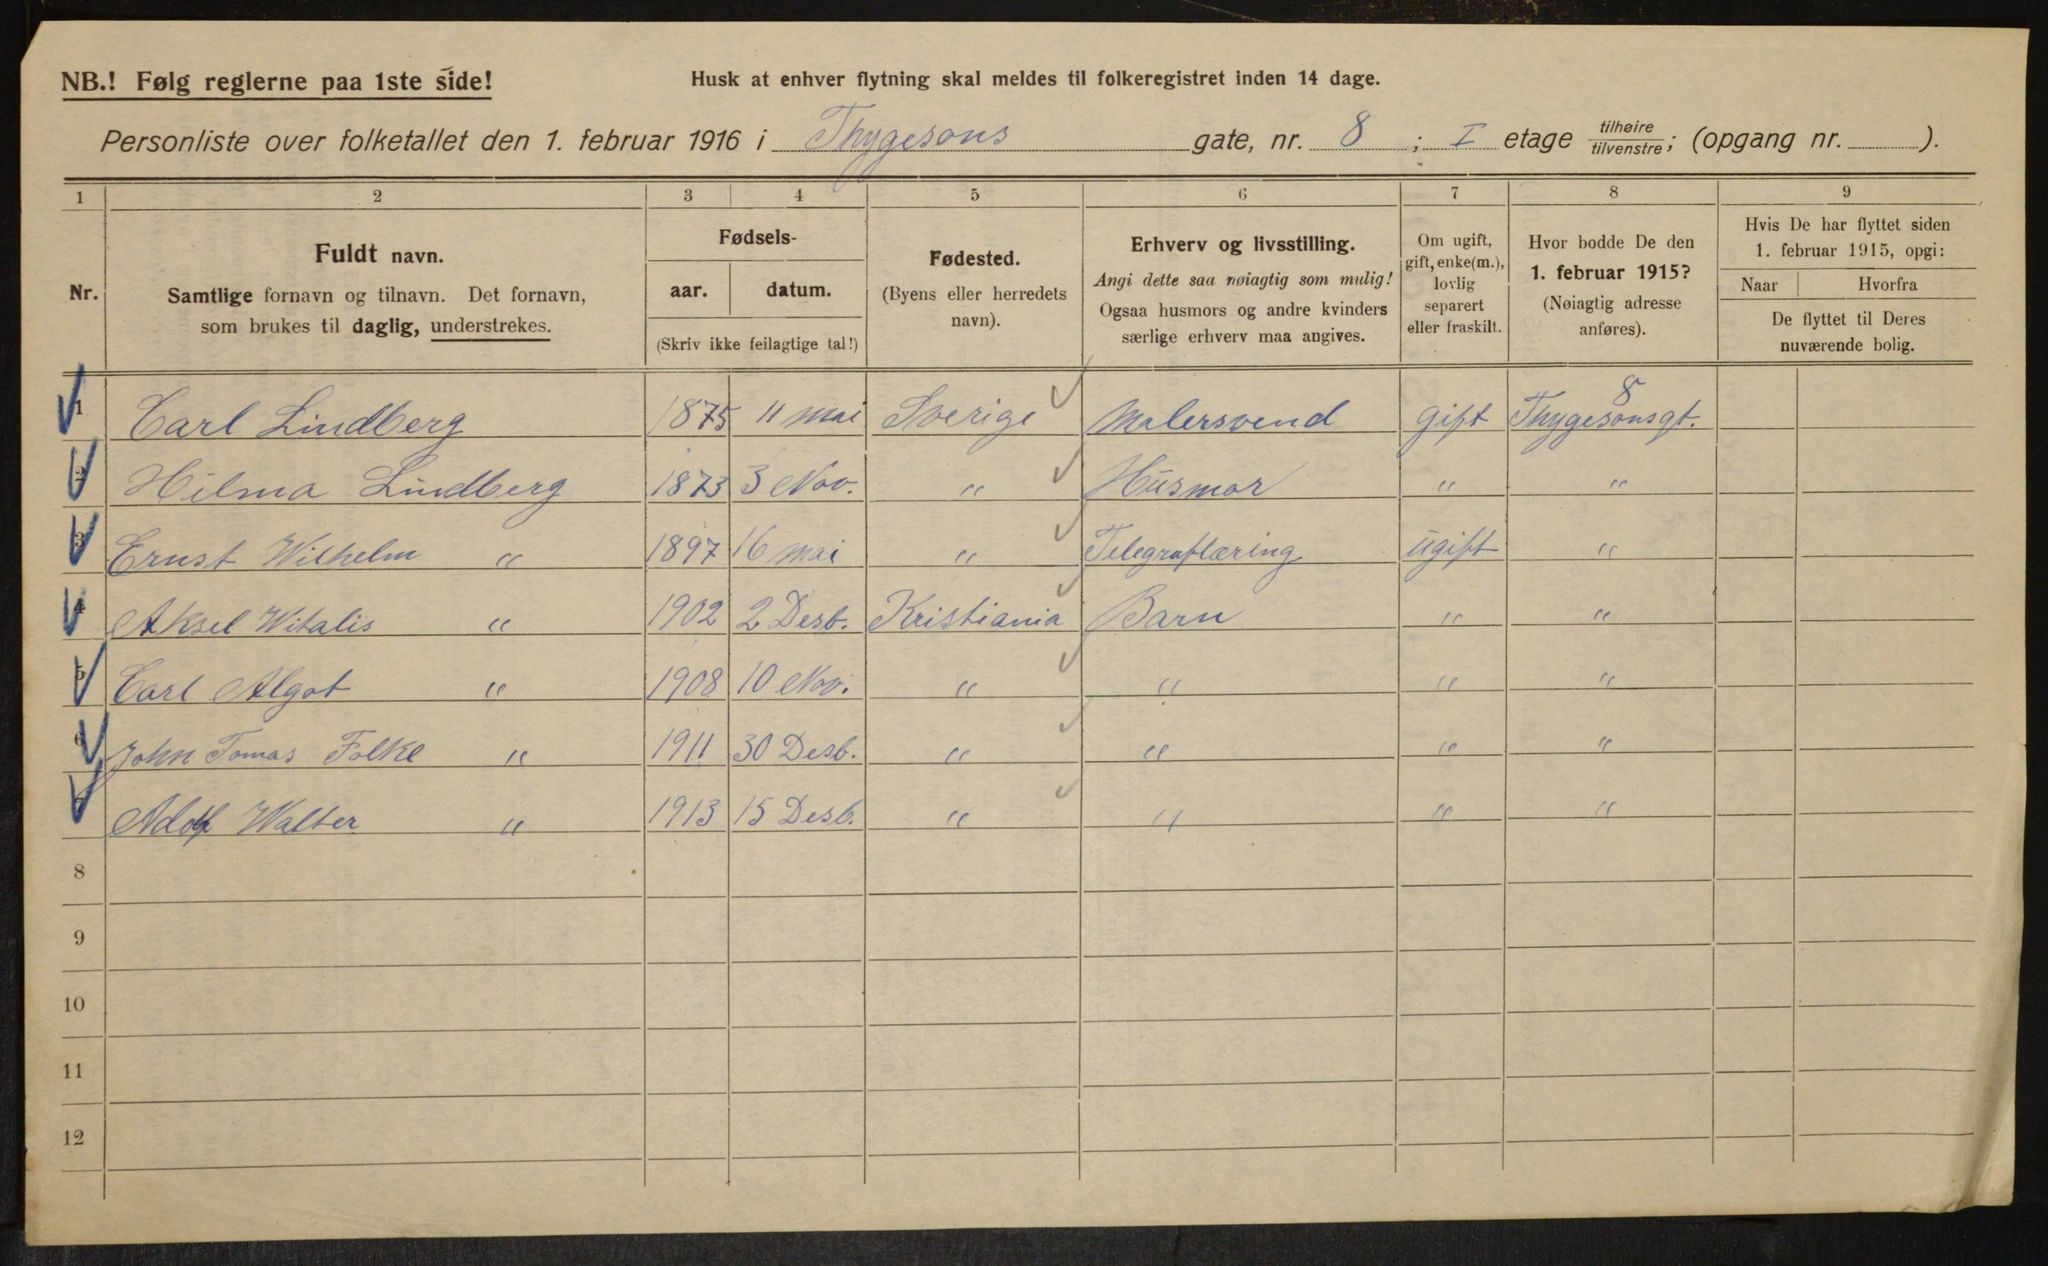 NB.! Følg reglerne paa 1ste side!
Husk at enhver flytning skal meldes til folkeregistret inden 14 dage.
Personliste over folketallet den 1. februar 1916 i Thygesons gate, nr. 8 ; I etage tilhøire/tilvenstre; (opgang nr. ).
1 2 3 4 5 6 7 8 9
Nr.
Fuldt navn.
Samtlige fornavn og tilnavn. Det fornavn,
som brukes til daglig, understrekes.
Fødsels-
aar. datum.
(Skriv ikke feilagtige tal!)
Fødested.
(Byens eller herredets
navn).
Erhverv og livsstilling.
Angi dette saa nøiagtig som mulig!
Ogsaa husmors og andre kvinders
særlige erhverv maa angives.
Om ugift,
gift, enke(m.),
lovlig
separert
eller fraskilt.
Hvor bodde De den
1. februar 1915?
(Nøiagtig adresse
anføres).
Hvis De har flyttet siden
1. februar 1915, opgi:
Naar Hvorfra
De flyttet til Deres
nuværende bolig.
1 Carl Lindberg 1875 11 mai Sverige Malersvend gift Thygesonsgt. 8
2 Hilma Lindberg 1873 3 Nov. " Husmor " "
3 Ernst Wilhelm " 1897 16 mai " Telegraflæring ugift "
4 Aksel Witalis " 1902 2 Desb. Kristiania Barn " "
5 Carl Algot " 1908 10 Nov. " " " "
6 John Tomas Folke " 1911 30 Desb. " " " "
7 Adolf Walter " 1913 15 Desb. " " " "
8
9
10
11
12